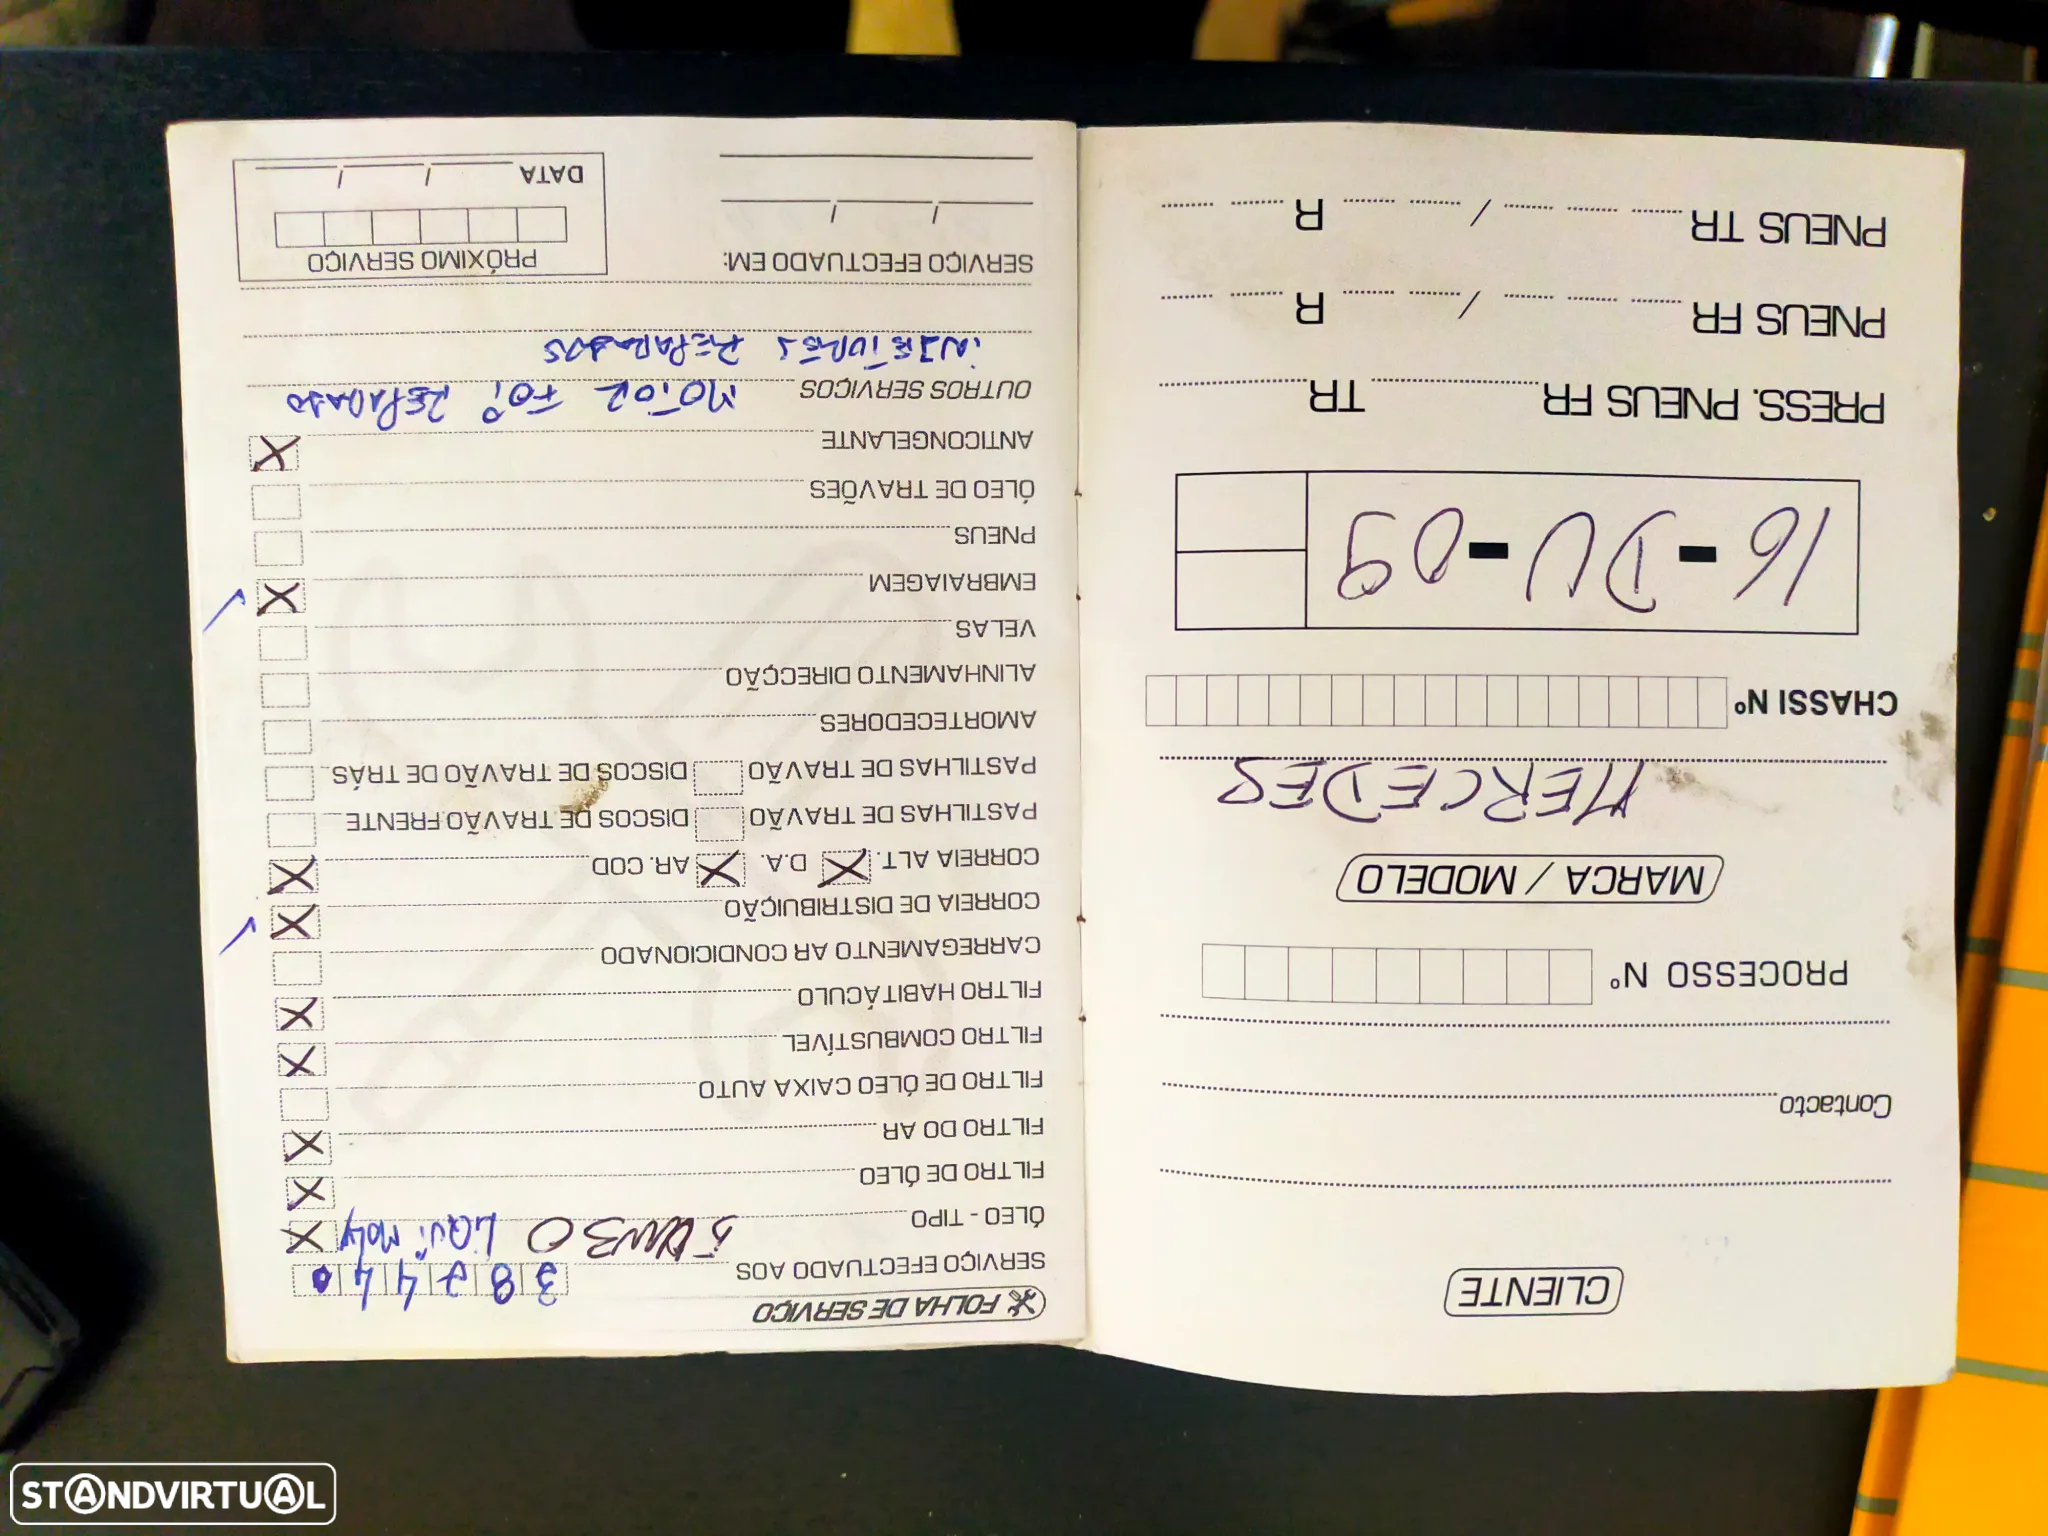 CLIENTE
Contacto
PROCESSO Nº
MARCA / MODELO
MERCEDES
CHASSI Nº
16-DU-09
PRESS. PNEUS FR TR
PNEUS FR / R
PNEUS TR / R
FOLHA DE SERVIÇO
SERVIÇO EFECTUADO AOS 387440
ÓLEO - TIPO 5W30 LIQUI MOLY
FILTRO DE ÓLEO
FILTRO DO AR
FILTRO DE ÓLEO CAIXA AUTO
FILTRO COMBUSTÍVEL
FILTRO HABITÁCULO
CARREGAMENTO AR CONDICIONADO
CORREIA DE DISTRIBUIÇÃO
CORREIA ALT. D.A. AR. COD
PASTILHAS DE TRAVÃO DISCOS DE TRAVÃO FRENTE
PASTILHAS DE TRAVÃO DISCOS DE TRAVÃO DE TRÁS
AMORTECEDORES
ALINHAMENTO DIRECÇÃO
VELAS
EMBRAIAGEM
PNEUS
ÓLEO DE TRAVÕES
ANTICONGELANTE
OUTROS SERVIÇOS MOTOR FOI REPARADO
INJETORES REPARADOS
SERVIÇO EFECTUADO EM:
/ /
PRÓXIMO SERVIÇO
DATA / /
STANDVIRTUAL